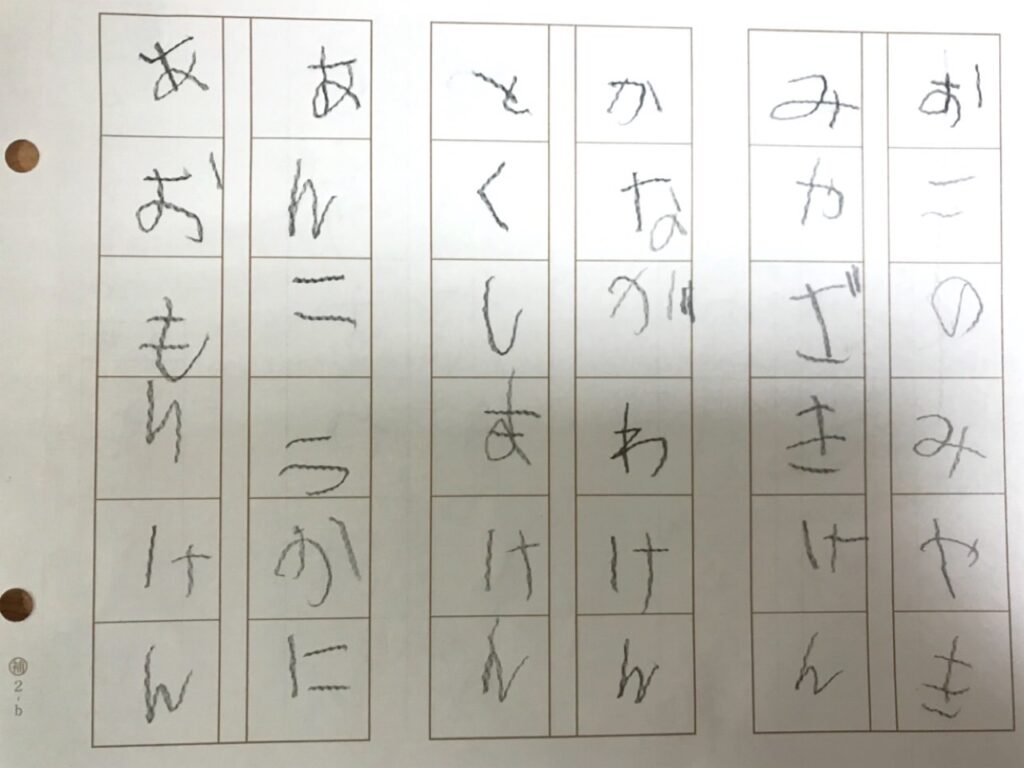 おこのみやき
みやざきけん
かながわけん
とくしまけん
あんこうかに
あおもりけん
補2-b